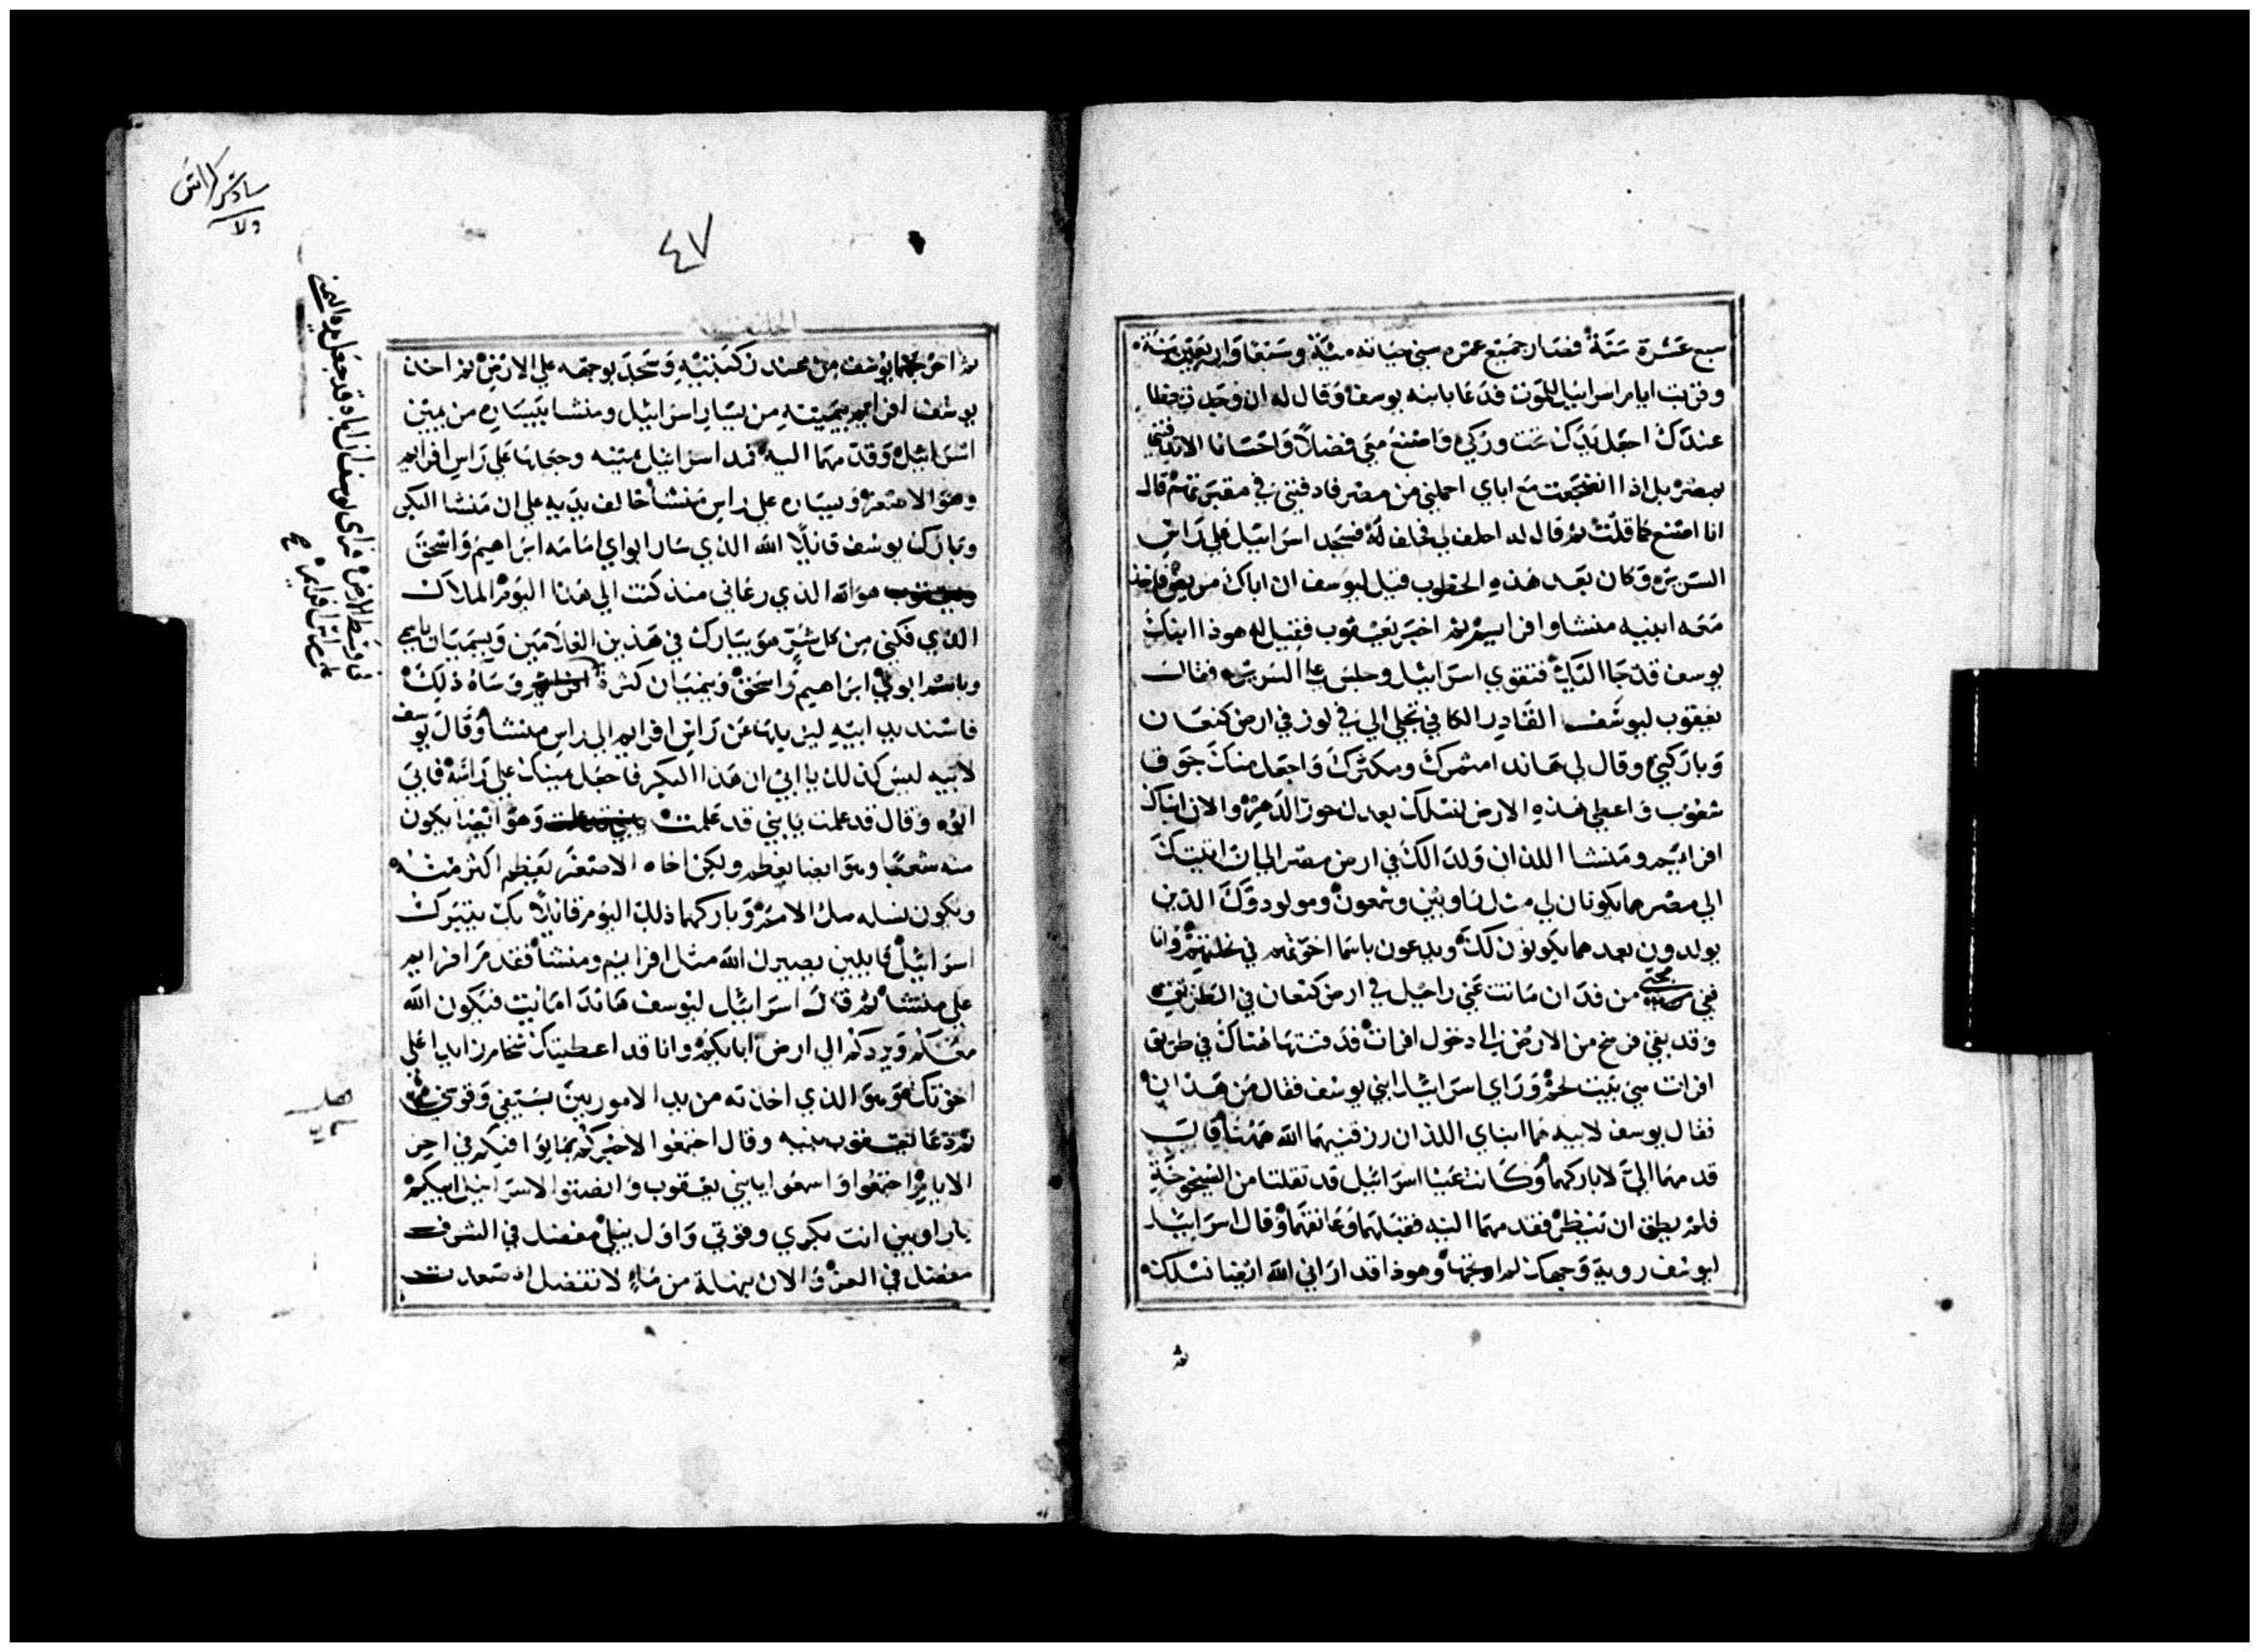 سبع عشرة سنة فصار جميع عمره سني حياته مئة وسبعا واربعين سنة
وقربت ايام اسرائيل للموت فدعا بابنه يوسف وقال له ان وجدت حظا
عندك اجعل يدك تحت وركي واصنع معي فضلا واحسانا الا تدفني
بمصر بل اذا انضجعت مع اباي احملني من مصر فادفني في مقبرتهم قال
انا اصنع كما قلت ثم قال له احلف لي فحلف له فسجد اسرائيل على راس
السرير وكان بعد هذه الخطوب قيل ليوسف ان اباك مريض فاخذ
معه ابنيه منشا وافرايم ثم اخبر يعقوب فقيل له هوذا ابنك
يوسف قد جا اليك فتقوي اسرائيل وجلس علي السرير فقال
يعقوب ليوسف القادر الكافي تجلي الي في لوز في ارض كنعان
وباركني وقال لي هاندا مثمرك ومكثرك واجعل منك جوق
شعوب واعطي هذه الارض لنسلك بعدك حوز الدهر والان ابناك
افرايم ومنشا اللذان ولدا لك في ارض مصر الي ان اتيتك
الي مصر هما يكونان لي مثل راوبين وشمعون ومولودوك الذين
يولدون بعدهما يكونون لك ويدعون باسما اخوتهم في نحلتهم وانا
ففي مجيي من فدان ماتت عني راحيل في ارض كنعان في الطريق
وقد بقي فرسخ من الارض الى دخول افراث فدفنتها هناك في طريق
افراث هي بيت لحم وراي اسرائيل ابني يوسف فقال من هذان
فقال يوسف لابيه هما ابناي اللذان رزقنيهما الله ههنا قال
قدمهما الي لاباركهما وكانت عينا اسرائيل قد ثقلتا من الشيخوخة
فلم يطق ان ينظر فقدمهما اليه فقبلهما وعانقهما وقال اسرائيل
ليوسف روية وجهك لم ارتجها وهوذا قد اراني الله ايضا نسلك
ثم
سادس كراس
ولا
٤٧
ثم اخرجهما يوسف من عند ركبتيه وسجد بوجهه علي الارض ثم اخذ
يوسف افرايم بيمينه من يسار اسرائيل ومنشا بيساره من يمين
اسرائيل وقدمهما اليه فمد اسرائيل يمينه وجعلها علي راس افرايم
وهو الاصغر ويساره علي راس منشا خالف يديه علي ان منشا البكر
وبارك يوسف قائلا الله الذي سار ابواي امامه ابراهيم واسحق
هو الله الذي رعاني منذ كنت الي هذا اليوم الملاك
الذي فكني من كل شر هو يبارك في هذين الغلامين ويسميان باسمي
وباسم ابوي ابراهيم واسحق وينميان كثرة وساه ذلك
فاسند يد ابيه ليزيلها عن راس افرايم الي راس منشا وقال يوسف
لابيه ليس كذلك يا ابي ان هذا البكر فاجعل يمينك علي راسه فابي
ابوه وقال قد علمت يا بني قد علمت وهو ايضا يكون
منه شعبا وهو ايضا يعظم ولكن اخاه الاصغر يعظم اكثر منه
ويكون نسله ملا الامم وباركهما ذلك اليوم قائلا بك يتبرك
اسرائيل قايلين يصيرك الله مثل افرايم ومنشا فقدم افرايم
علي منشا ثم قال اسرائيل ليوسف هاندا امايت فيكون الله
معكم ويردكم الي ارض ابايكم وانا قد اعطيتك سخامن ايدا علي
اخوتك وهو الذي اخذته من يد الاموريين بسيفي وقوتي
ثم دعا يعقوب بنيه وقال اجتمعوا لاخبركم بما يوافيكم في اخر
الايام اجتمعوا واسمعوا يا بني يعقوب وانصتوا لاسرائيل ابيكم
يا راوبين انت بكري وقوتي واول بنيلي مفضل في الشرف
مفضل في العز والان بهتلة من ماء لا تفضل اذ صعدت